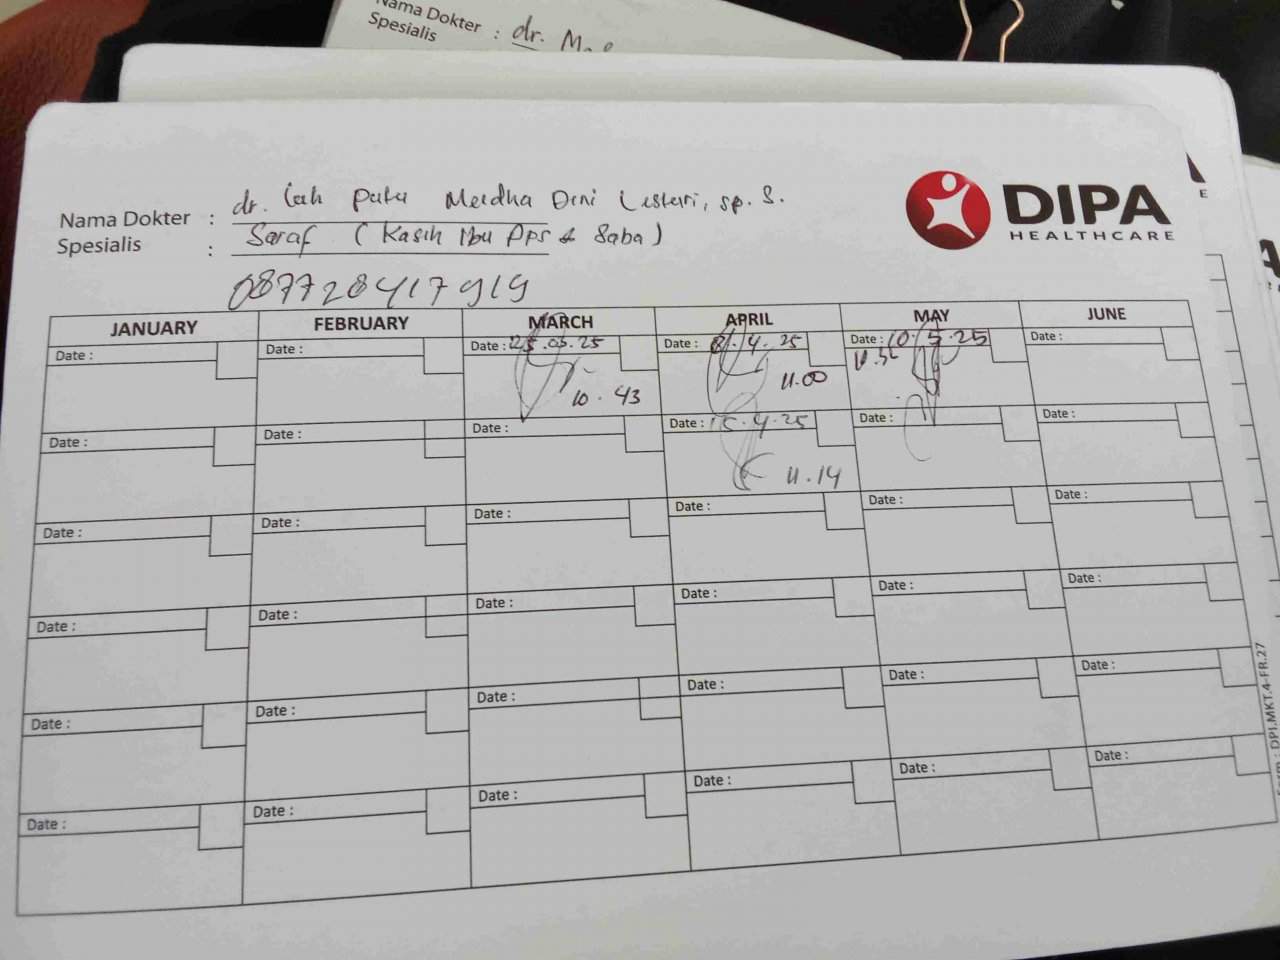 Nama Dokter
Spesialis : dr.
Nama Dokter : dr. Putu Meidha Deni Lestari, sp. S.
Spesialis : Saraf ( Kasih Ibu Dps & Saba )
087728417919
DIPA
HEALTHCARE
JANUARY FEBRUARY MARCH APRIL MAY JUNE
Date : Date : Date : 25.03.25 Date : 8.4.25 Date : 10.5.25 Date :
10.43 11.00
Date : Date : Date : Date : 15.4.25 Date : Date :
11.14
Date : Date : Date : Date : Date : Date :
Date : Date : Date : Date : Date : Date :
Date : Date : Date : Date : Date : Date :
Date : Date : Date : Date : Date : Date :
Form : DPI.MKT.4-FR.27